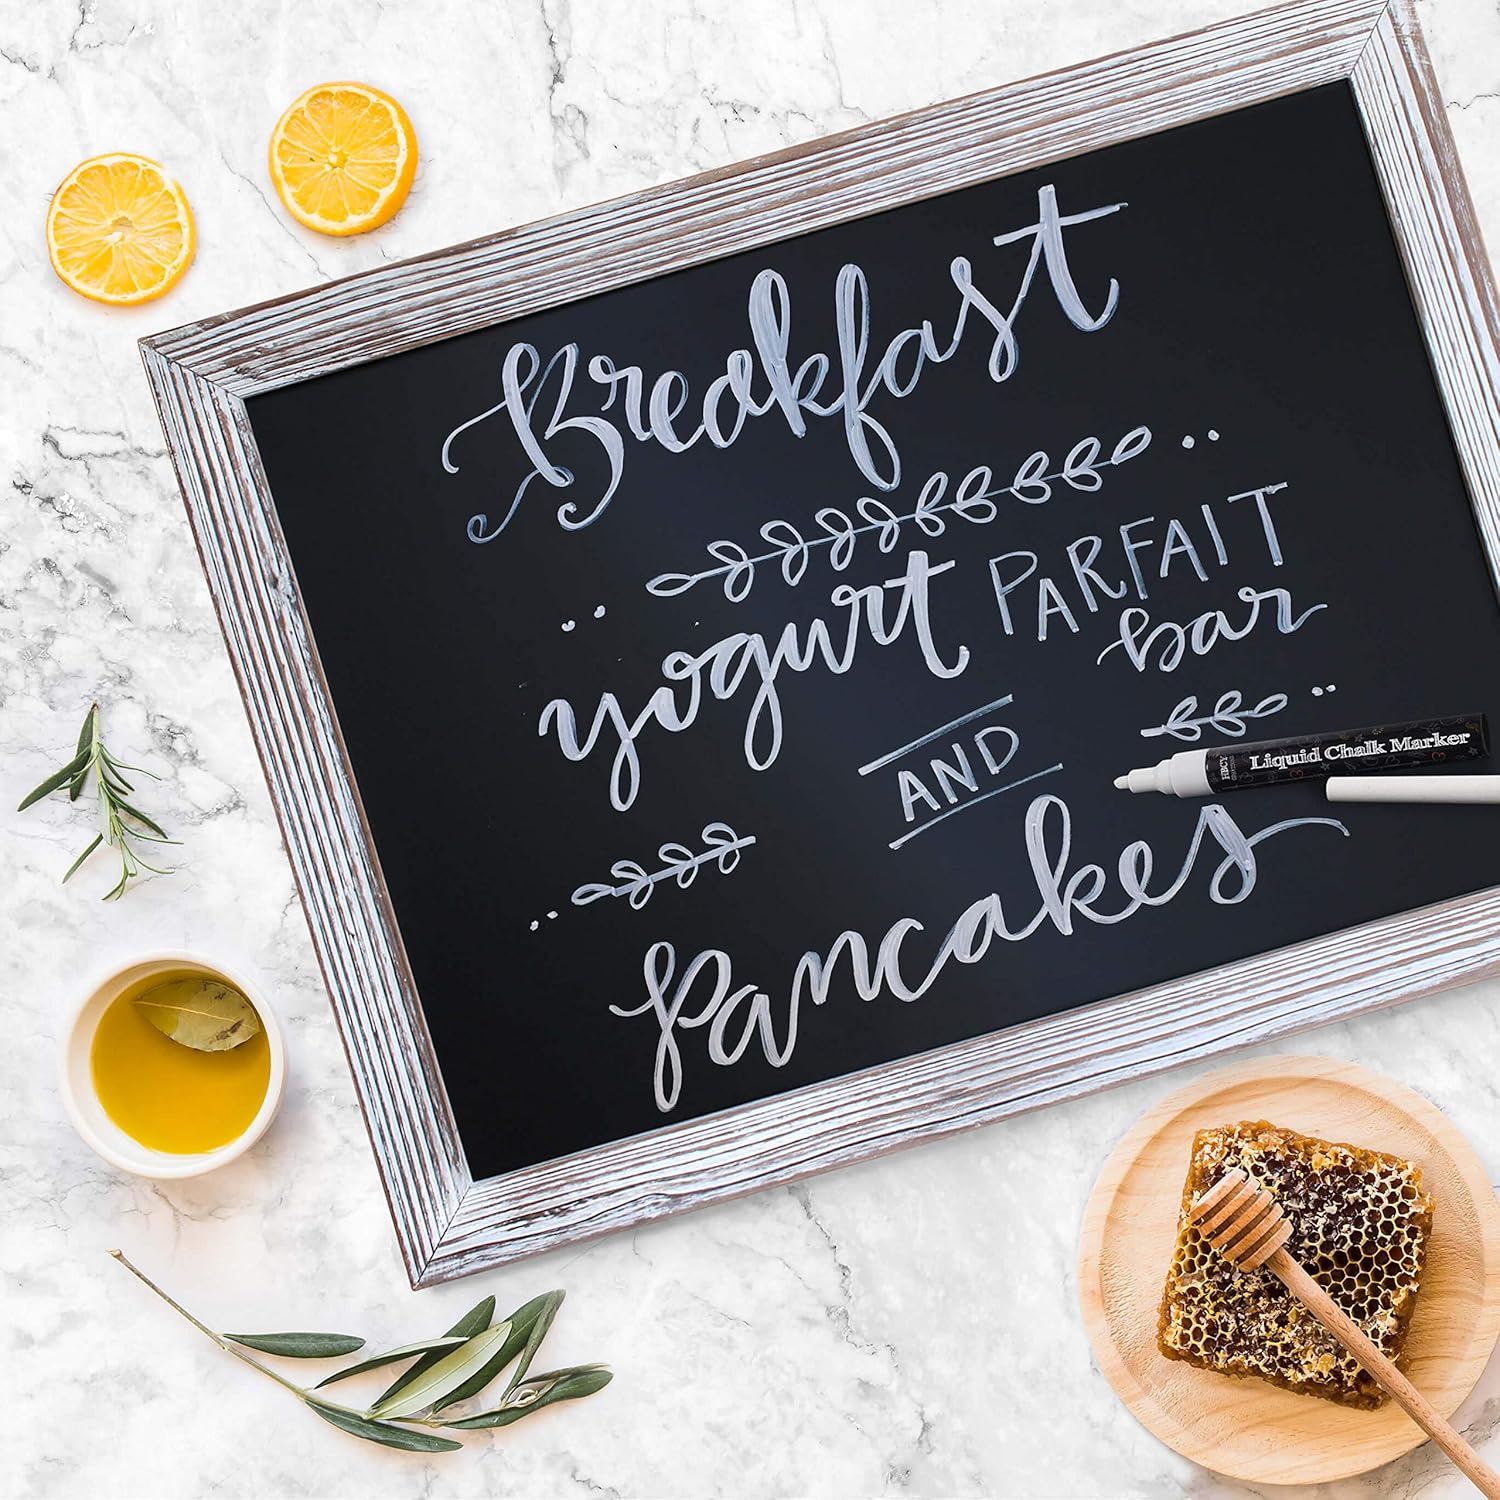 Breakfast
yogurt PARFAIT
bar
AND
Pancakes
HBCY
Liquid Chalk Marker